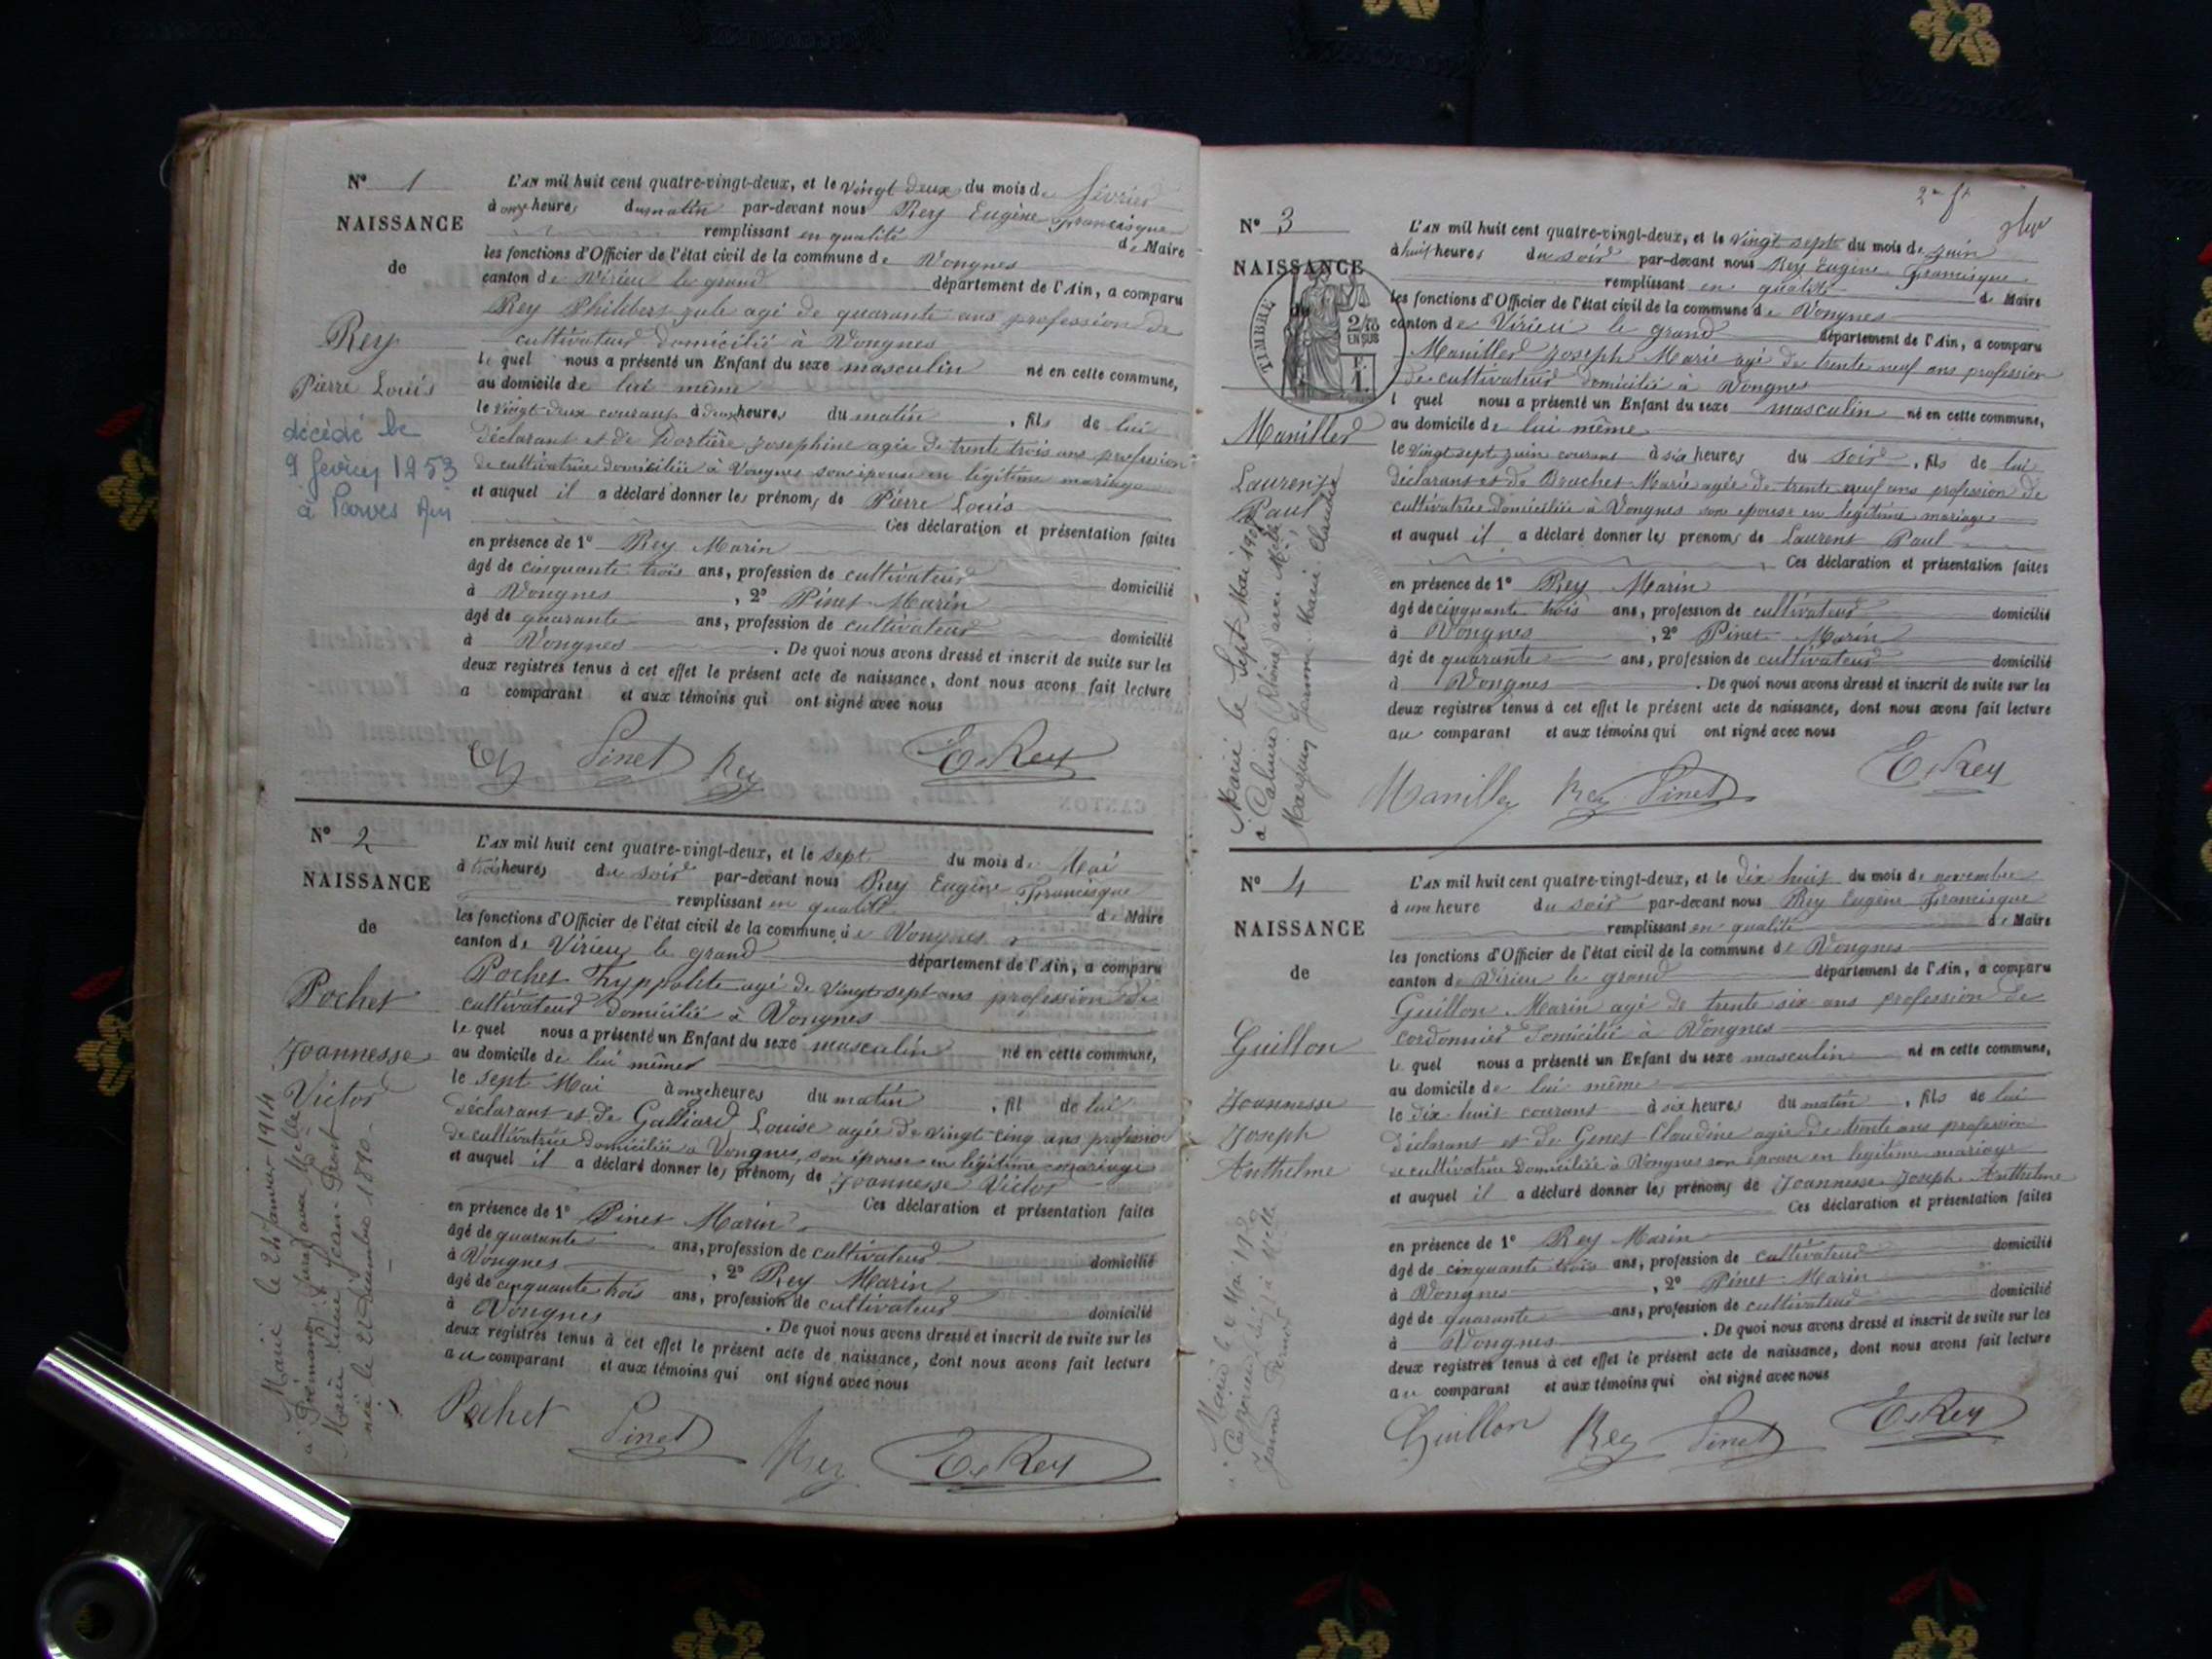 N° 1
NAISSANCE
de
Rey
Pierre Louis
décédé le
9 février 1953
à Parves Ain
L'AN mil huit cent quatre-vingt-deux, et le vingt deux du mois de février
à onze heures du matin par-devant nous Rey Eugène Francisque
remplissant en qualité de Maire
les fonctions d'Officier de l'état civil de la commune de Vongnes
canton de Virieu le grand département de l'Ain, a comparu
Rey Philibert Jule agé de quarante ans profession de
cultivateur domicilié à Vongnes
le quel nous a présenté un Enfant du sexe masculin né en cette commune,
au domicile de lui même
le vingt deux courant à deux heures du matin, fils de lui
déclarant et de Josephine agée de trente trois ans profession
de cultivatrice domiciliée à Vongnes son épouse en légitime mariage
et auquel il a déclaré donner les prénoms de Pierre Louis
Ces déclaration et présentation faites
en présence de 1° Rey Marin
âgé de cinquante trois ans, profession de cultivateur domicilié
à Vongnes, 2° Pinet Marin
âgé de quarante ans, profession de cultivateur domicilié
à Vongnes. De quoi nous avons dressé et inscrit de suite sur les
deux registres tenus à cet effet le présent acte de naissance, dont nous avons fait lecture
a comparant et aux témoins qui ont signé avec nous
Pinet Rey E. Rey
N° 2
NAISSANCE
de
Pochet
Joannesse
Victor
Marié le 24 Janvier 1914
à avec Melle
Marie
née le 22 Décembre 1890
L'AN mil huit cent quatre-vingt-deux, et le sept du mois de Mai
à trois heures du soir par-devant nous Rey Eugène Francisque
remplissant en qualité de Maire
les fonctions d'Officier de l'état civil de la commune de Vongnes
canton de Virieu le grand département de l'Ain, a comparu
Pochet Hyppolite agé de vingt-sept ans profession de
cultivateur domicilié à Vongnes
le quel nous a présenté un Enfant du sexe masculin né en cette commune,
au domicile de lui même
le sept Mai à onze heures du matin, fil de lui
déclarant et de Galliard Louise agée de vingt cinq ans profession
de cultivatrice domiciliée à Vongnes, son épouse en légitime mariage
et auquel il a déclaré donner les prénoms de Joannesse Victor
Ces déclaration et présentation faites
en présence de 1° Pinet Marin
âgé de quarante ans, profession de cultivateur domicilié
à Vongnes, 2° Rey Marin
âgé de cinquante trois ans, profession de cultivateur domicilié
à Vongnes. De quoi nous avons dressé et inscrit de suite sur les
deux registres tenus à cet effet le présent acte de naissance, dont nous avons fait lecture
au comparant et aux témoins qui ont signé avec nous
Pochet Pinet Rey E. Rey
N° 3
NAISSANCE
de
TIMBRE
2/10
EN SUS
F.
1.
Manillier
Laurent
Paul
Marié le Sept Mai
à Caluire (Rhône) avec Melle
Jeanne Marie Claudia
L'AN mil huit cent quatre-vingt-deux, et le vingt sept du mois de Juin
à huit heures du soir par-devant nous Rey Eugène Francisque
remplissant en qualité de Maire
les fonctions d'Officier de l'état civil de la commune de Vongnes
canton de Virieu le grand département de l'Ain, a comparu
Manillier Joseph Marie agé de trente neuf ans profession
de cultivateur domicilié à Vongnes
l quel nous a présenté un Enfant du sexe masculin né en cette commune,
au domicile de lui même
le vingt sept juin courant à six heures du soir, fils de lui
déclarant et de Brachet Marie agée de trente neuf ans profession de
cultivatrice domiciliée à Vongnes son épouse en légitime mariage
et auquel il a déclaré donner les prénoms de Laurent Paul
Ces déclaration et présentation faites
en présence de 1° Rey Marin
âgé de cinquante trois ans, profession de cultivateur domicilié
à Vongnes, 2° Pinet Marin
âgé de quarante ans, profession de cultivateur domicilié
à Vongnes. De quoi nous avons dressé et inscrit de suite sur les
deux registres tenus à cet effet le présent acte de naissance, dont nous avons fait lecture
au comparant et aux témoins qui ont signé avec nous
Manillier Rey Pinet E. Rey
N° 4
NAISSANCE
de
Guillon
Joannesse
Joseph
Anthelme
Marié le Mai
à Melle
Jeanne
L'AN mil huit cent quatre-vingt-deux, et le dix huit du mois de novembre
à une heure du soir par-devant nous Rey Eugène Francisque
remplissant en qualité de Maire
les fonctions d'Officier de l'état civil de la commune de Vongnes
canton de Virieu le grand département de l'Ain, a comparu
Guillon Marin agé de trente six ans profession de
cordonnier domicilié à Vongnes
le quel nous a présenté un Enfant du sexe masculin né en cette commune,
au domicile de lui même
le dix huit courant à six heures du matin, fils de lui
déclarant et de Genet Claudine agée de trente ans profession
de cultivatrice domiciliée à Vongnes son épouse en légitime mariage
et auquel il a déclaré donner les prénoms de Joannesse Joseph Anthelme
Ces déclaration et présentation faites
en présence de 1° Rey Marin
âgé de cinquante trois ans, profession de cultivateur domicilié
à Vongnes, 2° Pinet Marin
âgé de quarante ans, profession de cultivateur domicilié
à Vongnes. De quoi nous avons dressé et inscrit de suite sur les
deux registres tenus à cet effet le présent acte de naissance, dont nous avons fait lecture
au comparant et aux témoins qui ont signé avec nous
Guillon Rey Pinet E. Rey